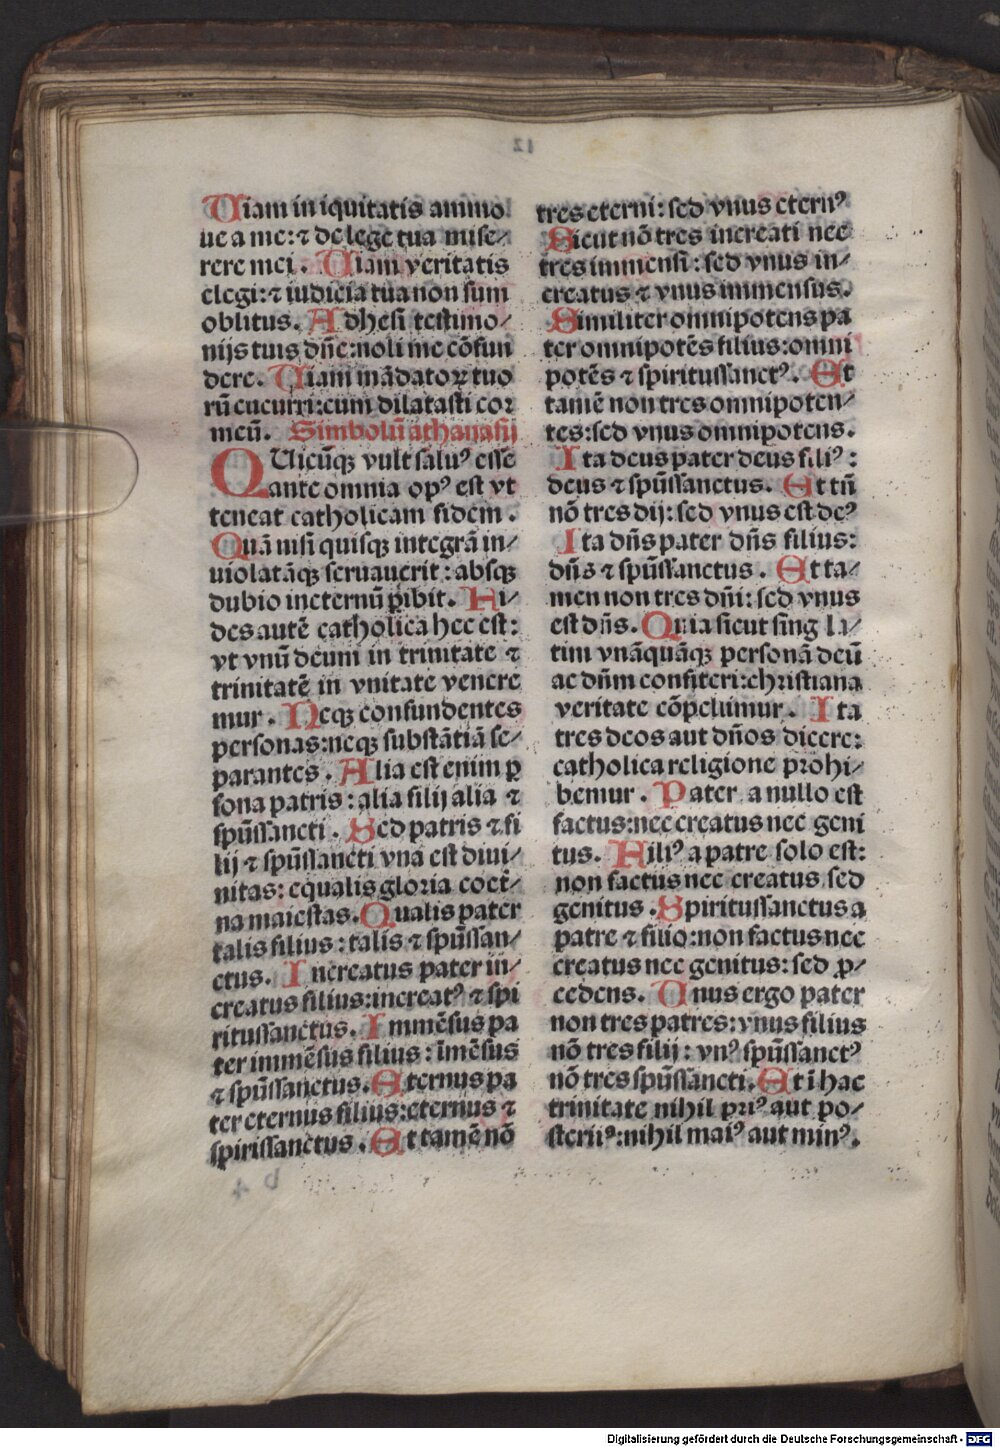 Uiam in iquitatis ammo
ue a me: ⁊ de lege tua mise⸗
rere mei. Uiam veritatis
elegi: ⁊ iudicia tua non sum
oblitus. Adhesi testimo⸗
nijs tuis dñe: noli me cõfun
dere. Uiam mãdatoꝝ tuo
rũ cucurri: cum dilatasti coꝛ
meũ. Simbolũ athanasij
QUicũqꝫ vult saluꝰ esse
ante omnia opꝰ est vt
teneat catholicam fidem.
Quã nisi quisqꝫ integrã in⸗
uiolatãqꝫ seruauerit: absqꝫ
dubio ineternũ ꝑibit. Fi⸗
des autẽ catholica hec est:
vt vnũ deum in trinitate ⁊
trinitatẽ in vnitate venere
mur. Neqꝫ confundentes
personas: neqꝫ substãtiã se⸗
parantes. Alia est enim ꝑ
sona patris: alia filij alia ⁊
spũssancti. Sed patris ⁊ fi
lij ⁊ spũssancti vna est diui⸗
nitas: equalis gloꝛia coet̃⸗
na maiestas. Qualis pater
talis filius: talis ⁊ spũssan⸗
ctus. Increatus pater in⸗
creatus filius: increatꝰ ⁊ spi
ritussanctus. Immẽsus pa
ter immẽsus filius: ĩmẽsus
⁊ spũssanctus. Eternus pa
ter eternus filius: eternus ⁊
spirissanctus. Et tamẽ nõ
tres eterni: sed vnus eternꝰ
Sicut nõ tres increati nec
tres immensi: sed vnus in⸗
creatus ⁊ vnus immensus.
Similiter omnipotens pa
ter omnipotẽs filius: omni
potẽs ⁊ spiritussanctꝰ. Et
tamẽ non tres omnipoten⸗
tes: sed vnus omnipotens.
Ita deus pater deus filiꝰ:
deus ⁊ spũssanctus. Et tñ
nõ tres dij: sed vnus est deꝰ
Ita dñs pater dñs filius:
dñs ⁊ spũssanctus. Et ta⸗
men non tres dñi: sed vnus
est dñs. Quia sicut sing̃ la⸗
tim vnãquãqꝫ personã deũ
ac dñm confiteri: chꝛistiana
veritate cõpelumur. Ita
tres deos aut dños dicere:
catholica religione pꝛohi⸗
bemur. Pater a nullo est
factus: nec creatus nec geni
tus. Filiꝰ a patre solo est:
non factus nec creatus sed
genitus. Spiritussanctus a
patre ⁊ filio: non factus nec
creatus nec genitus: sed ꝓ⸗
cedens. Unus ergo pater
non tres patres: vnus filius
nõ tres filij: vnꝰ spũssanctꝰ
nõ tres spũssancti. Et i hac
trinitate nihil pꝛiꝰ aut po⸗
steriiꝰ: nihil maiꝰ aut minꝰ.
Digitalisierung gefördert durch die Deutsche Forschungsgemeinschaft - DFG